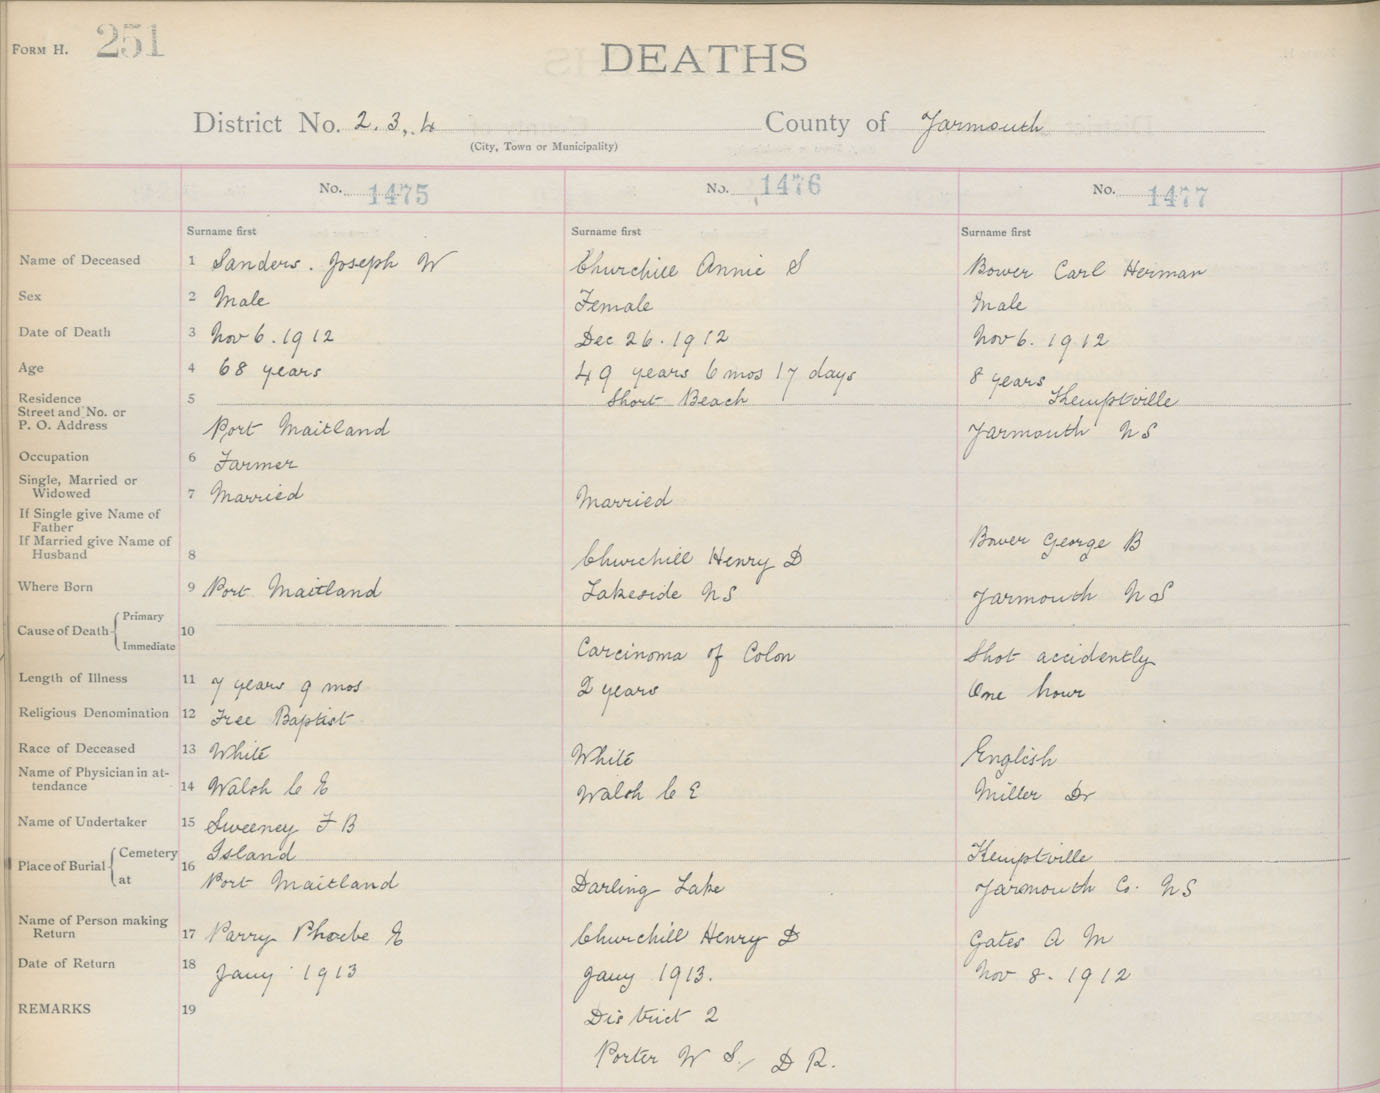 FORM H. 251
DEATHS
District No. 2. 3, 4 County of Yarmouth
(City, Town or Municipality)
No. 1475 No. 1476 No. 1477
Surname first Surname first Surname first
Name of Deceased 1 Sanders. Joseph W Churchill Annie S Bower Carl Herman
Sex 2 Male Female Male
Date of Death 3 Nov 6. 1912 Dec 26. 1912 Nov 6. 1912
Age 4 68 years 49 years 6 mos 17 days 8 years
Residence 5 Short Beach Kemptville
Street and No. or
P. O. Address Port Maitland Yarmouth NS
Occupation 6 Farmer
Single, Married or
Widowed 7 Married Married
If Single give Name of
Father Bower George B
If Married give Name of
Husband 8 Churchill Henry D
Where Born 9 Port Maitland Lakeside NS Yarmouth NS
Cause of Death Primary 10
Immediate Carcinoma of Colon Shot accidently
Length of Illness 11 7 years 9 mos 2 years One hour
Religious Denomination 12 Free Baptist
Race of Deceased 13 White White English
Name of Physician in at-
tendance 14 Walsh C E Walsh C E Miller Dr
Name of Undertaker 15 Sweeney F B
Place of Burial Cemetery 16 Island Kemptville
at Port Maitland Darling Lake Yarmouth Co. NS
Name of Person making
Return 17 Parry Phoebe E Churchill Henry D Gates A M
Date of Return 18 Jany 1913 Jany 1913. Nov 8. 1912
REMARKS 19 District 2
Porter W S./ D R.